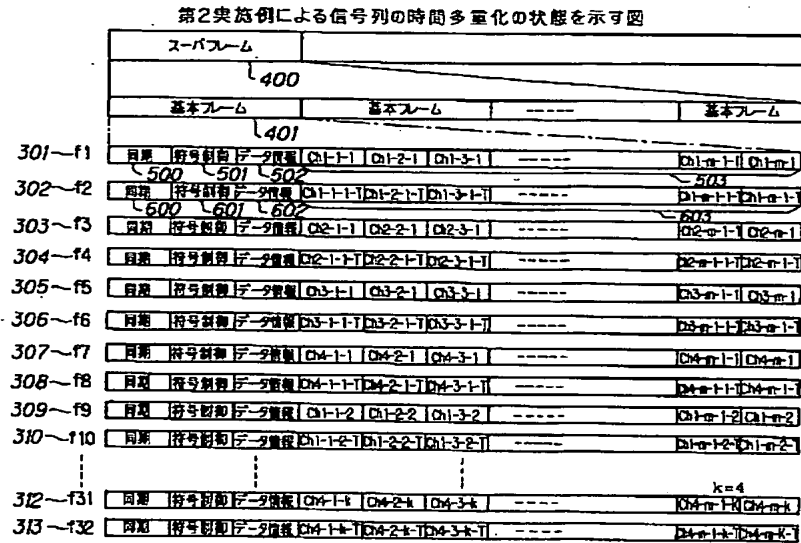 第2実施例による信号列の時間多重化の状態を示す図
スーパフレーム
400
基本フレーム 基本フレーム ----- 基本フレーム
401
301~f1 同期 符号制御 データ情報 Ch1-1-1 Ch1-2-1 Ch1-3-1 ----- Ch1-m-1-1 Ch1-m-1
500 501 502 503
302~f2 同期 符号制御 データ情報 Ch1-1-1-T Ch1-2-1-T Ch1-3-1-T Ch1-m-1-1-T Ch1-m-1-T
600 601 602 603
303~f3 同期 符号制御 データ情報 Ch2-1-1 Ch2-2-1 Ch2-3-1 ----- Ch2-m-1-1 Ch2-m-1
304~f4 同期 符号制御 データ情報 Ch2-1-1-T Ch2-2-1-T Ch2-3-1-T ----- Ch2-m-1-1-T Ch2-m-1-T
305~f5 同期 符号制御 データ情報 Ch3-1-1 Ch3-2-1 Ch3-3-1 ----- Ch3-m-1-1 Ch3-m-1
306~f6 同期 符号制御 データ情報 Ch3-1-1-T Ch3-2-1-T Ch3-3-1-T ----- Ch3-m-1-1-T Ch3-m-1-T
307~f7 同期 符号制御 データ情報 Ch4-1-1 Ch4-2-1 Ch4-3-1 ----- Ch4-m-1-1 Ch4-m-1
308~f8 同期 符号制御 データ情報 Ch4-1-1-T Ch4-2-1-T Ch4-3-1-T ----- Ch4-m-1-1-T Ch4-m-1-T
309~f9 同期 符号制御 データ情報 Ch1-1-2 Ch1-2-2 Ch1-3-2 ----- Ch1-m-1-2 Ch1-m-2
310~f10 同期 符号制御 データ情報 Ch1-1-2-T Ch1-2-2-T Ch1-3-2-T ----- Ch1-m-1-2-T Ch1-m-2-T
k=4
312~f31 同期 符号制御 データ情報 Ch4-1-k Ch4-2-k Ch4-3-k ----- Ch4-m-1-K Ch4-m-k
313~f32 同期 符号制御 データ情報 Ch4-1-k-T Ch4-2-k-T Ch4-3-k-T ----- Ch4-m-1-k-T Ch4-m-K-T